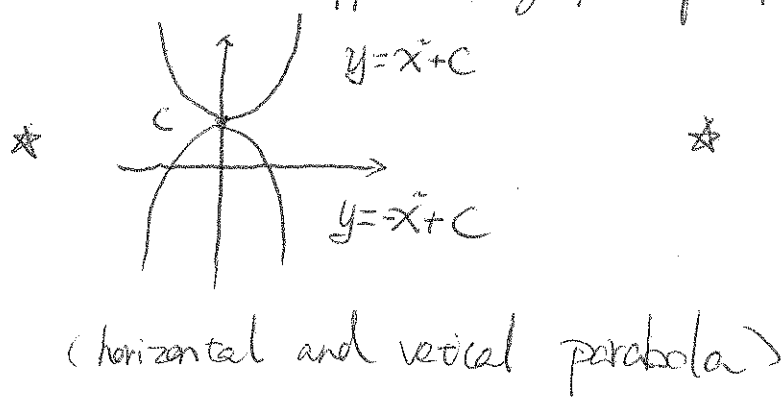 y=x²+C
C
y=-x²+C
(horizontal and vetical parabola)